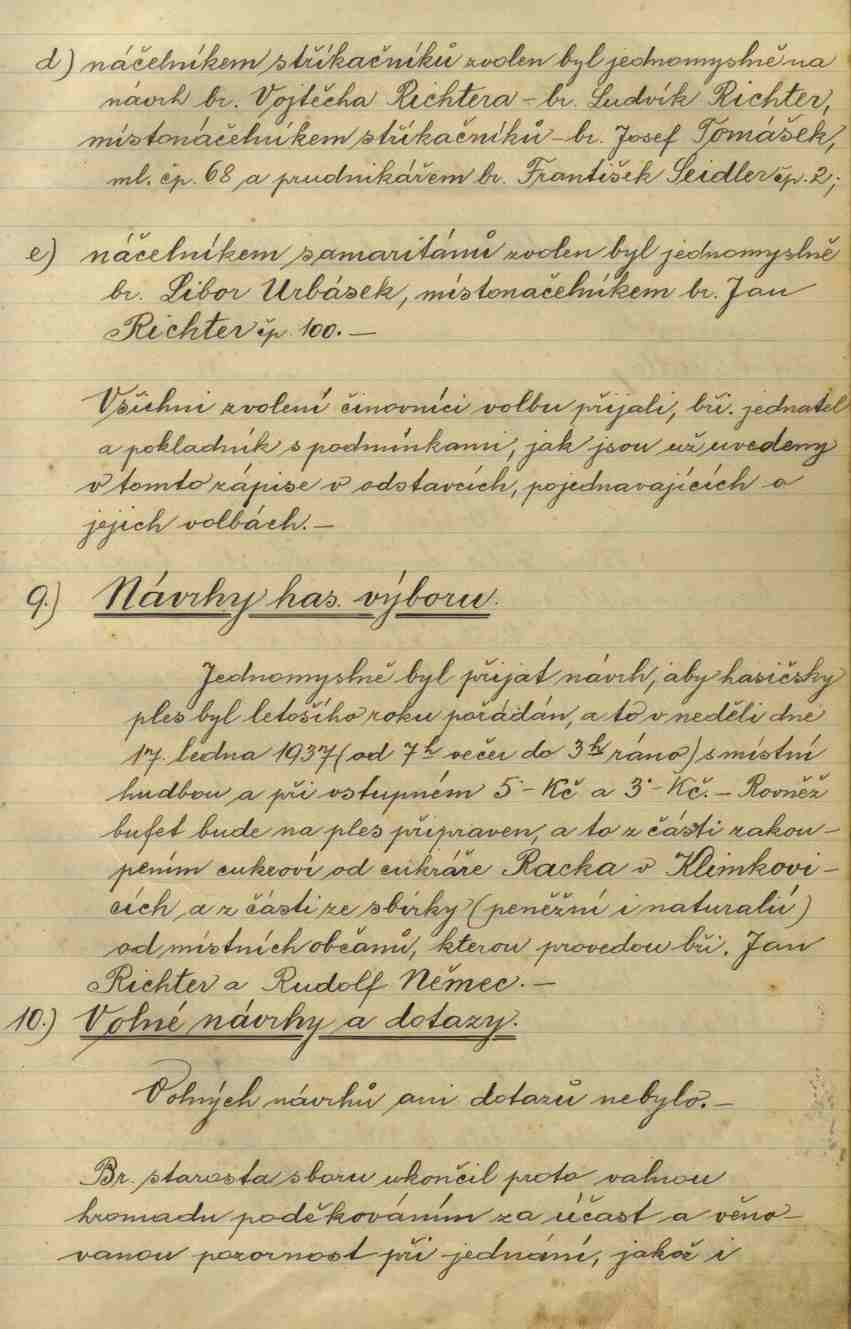 d) náčelníkem stříkačníků zvolen byl jednomyslně na
návrh br. Vojtěcha Richtera – br. Ludvík Richter,
místonáčelníkem stříkačníků – br. Josef Tomášek,
ml. čp. 68 a prudnikářem br. František Seidler čp. 2;
e) náčelníkem samaritánů zvolen byl jednomyslně
br. Libor Urbásek, místonačelníkem br. Jan
Richter čp. 100. —
Všichni zvolení činovníci volbu přijali, bří. jednatel
a pokladník s podmínkami, jak jsou už uvedeny
v tomto zápise v odstavcích, pojednavajících o
jejich volbách. —
9.) Návrhy has. výboru.
Jednomyslně byl přijat návrh, aby hasičsky
ples byl letošího roku pořádán, a to v neděli dne
17. ledna 1937 (od 7h večer do 3h ráno) s místní
hudbou a při vstupném 5·– Kč a 3·– Kč. – Rovněž
bufet bude na ples připraven, a to z části zakou-
pením cukroví od cukráře Racka v Klimkovi-
cích a z části ze sbírky (peněžní i naturalií)
od místních občanů, kterou provedou bři. Jan
Richter a Rudolf Němec. —
10.) Volné návrhy a dotazy.
Volných návrhů ani dotazů nebylo. —
Br. starosta sboru ukončil proto valnou
hromadu poděkováním za účast a věno-
vanou pozornost při jednání, jakož i